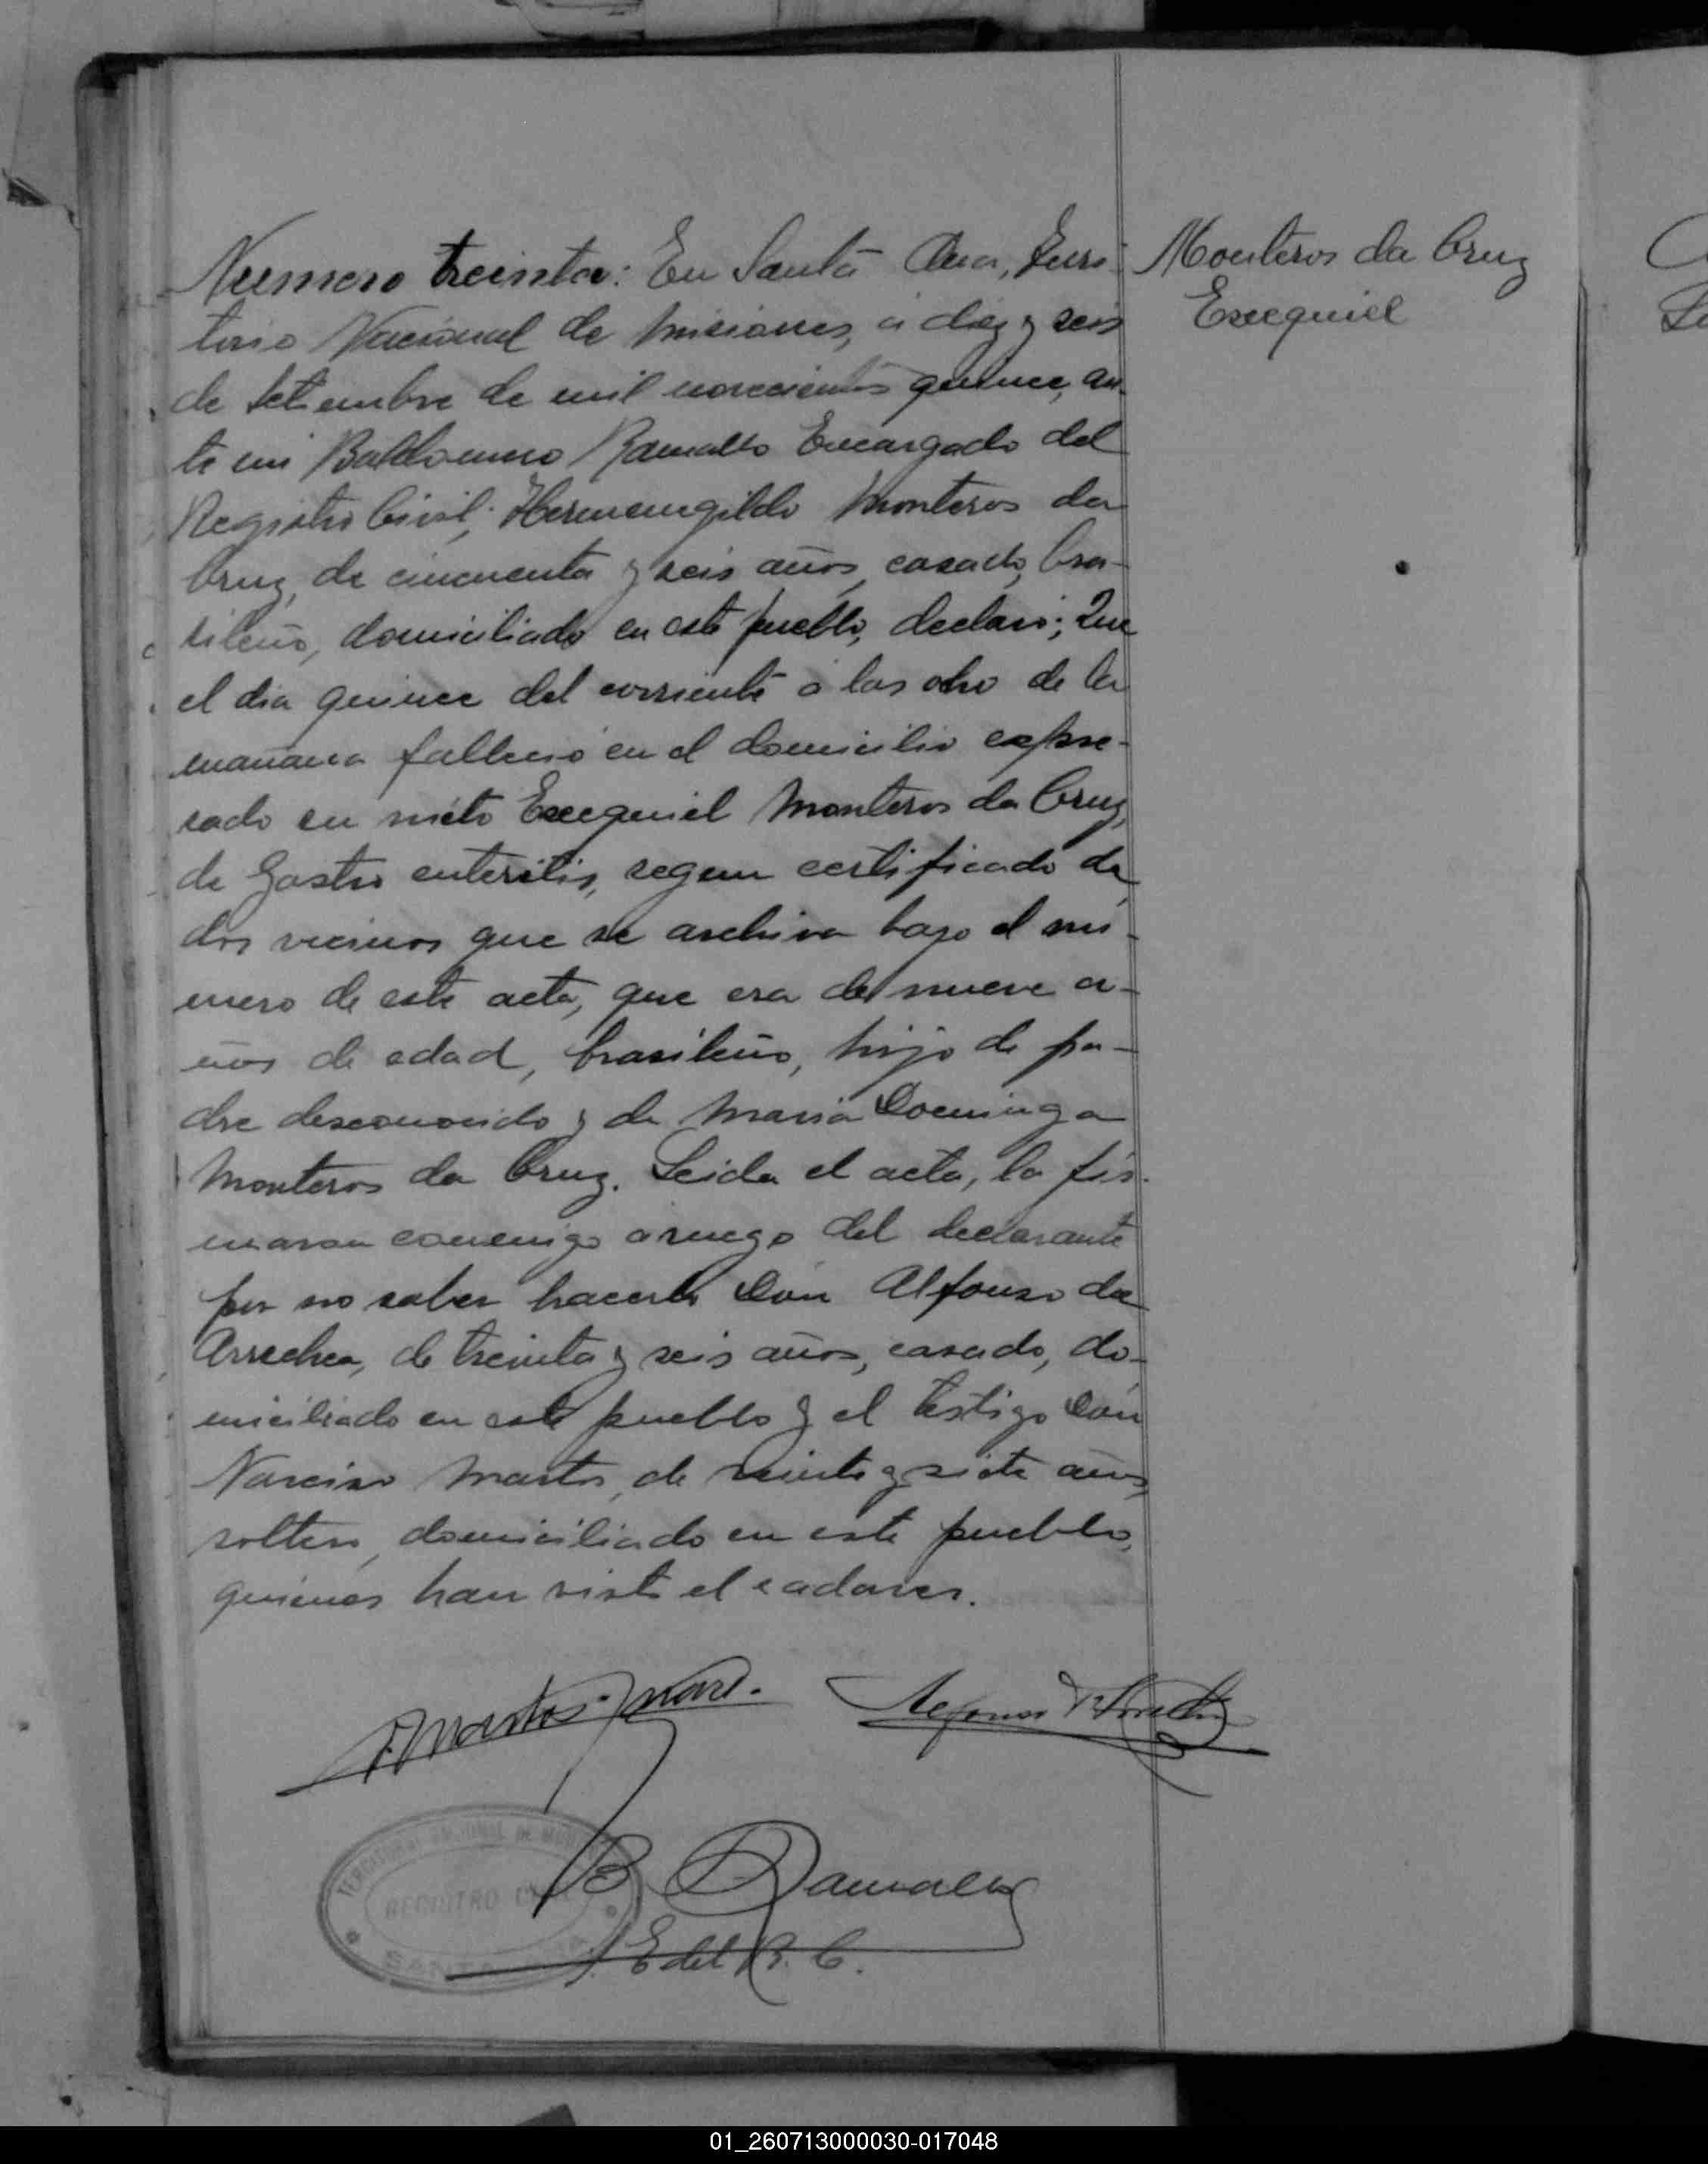 Numero treinta: En Santa Ana, Terri-
torio Nacional de Misiones, á diez y seis
de Setiembre de mil novecientos quince, an-
te mi Baldomero Ramallo Encargado del
Registro Civil; Hermenegildo Monteros da
Cruz, de cincuenta y seis años, casado, bra-
sileño, domiciliado en este pueblo, declaró; Que
el dia quince del corriente á las ocho de la
mañana falleció en el domicilio expre-
sado su nieto Exequiel Monteros da Cruz,
de Gastro enteritis, segun certificado de
dos vecinos que se archiva bajo el nú-
mero de este acta, que era de nueve a-
ños de edad, brasileño, hijo de pa-
dre desconocido y de Maria Dominga
Monteros da Cruz. Leida el acta, la fir-
maron conmigo a ruego del declarante
por no saber hacerlo Don Alfonso de
Arrechea, de treinta y seis años, casado, do-
miciliado en este pueblo y el testigo Don
Narciso Martos, de veinte y siete años,
soltero, domiciliado en este pueblo,
quienes han visto el cadaver.
Monteros da Cruz
Exequiel
Martos
Alfonso
B. Ramallo
E. del R. C.
TERRITORIO NACIONAL DE
REGISTRO CIVIL
SANTA
01_260713000030-017048